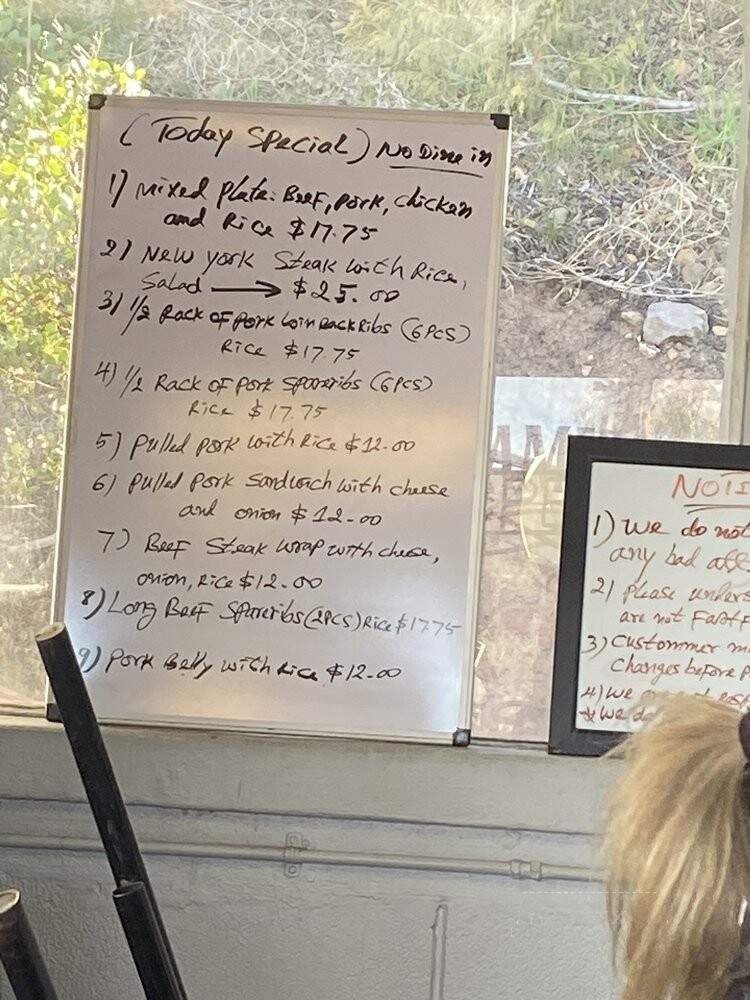 (Today Special) No Dine in
1) Mixed Plate: Beef, Pork, chicken
and Rice $17.75
2) New York Steak with Rice,
Salad → $25.00
3) 1/2 Rack of Pork Loin Back Ribs (6PCS)
Rice $17.75
4) 1/2 Rack of Pork Spareribs (6PCS)
Rice $17.75
5) Pulled Pork with Rice $12.00
6) Pulled Pork Sandwich with cheese
and onion $12.00
7) Beef Steak wrap with cheese,
onion, Rice $12.00
8) Long Beef Spareribs (2PCS) Rice $17.75
9) Pork Belly with Rice $12.00
1) We do not
any bad
2) Please
are not
3) Custommer
Changes before
4) We
* We do